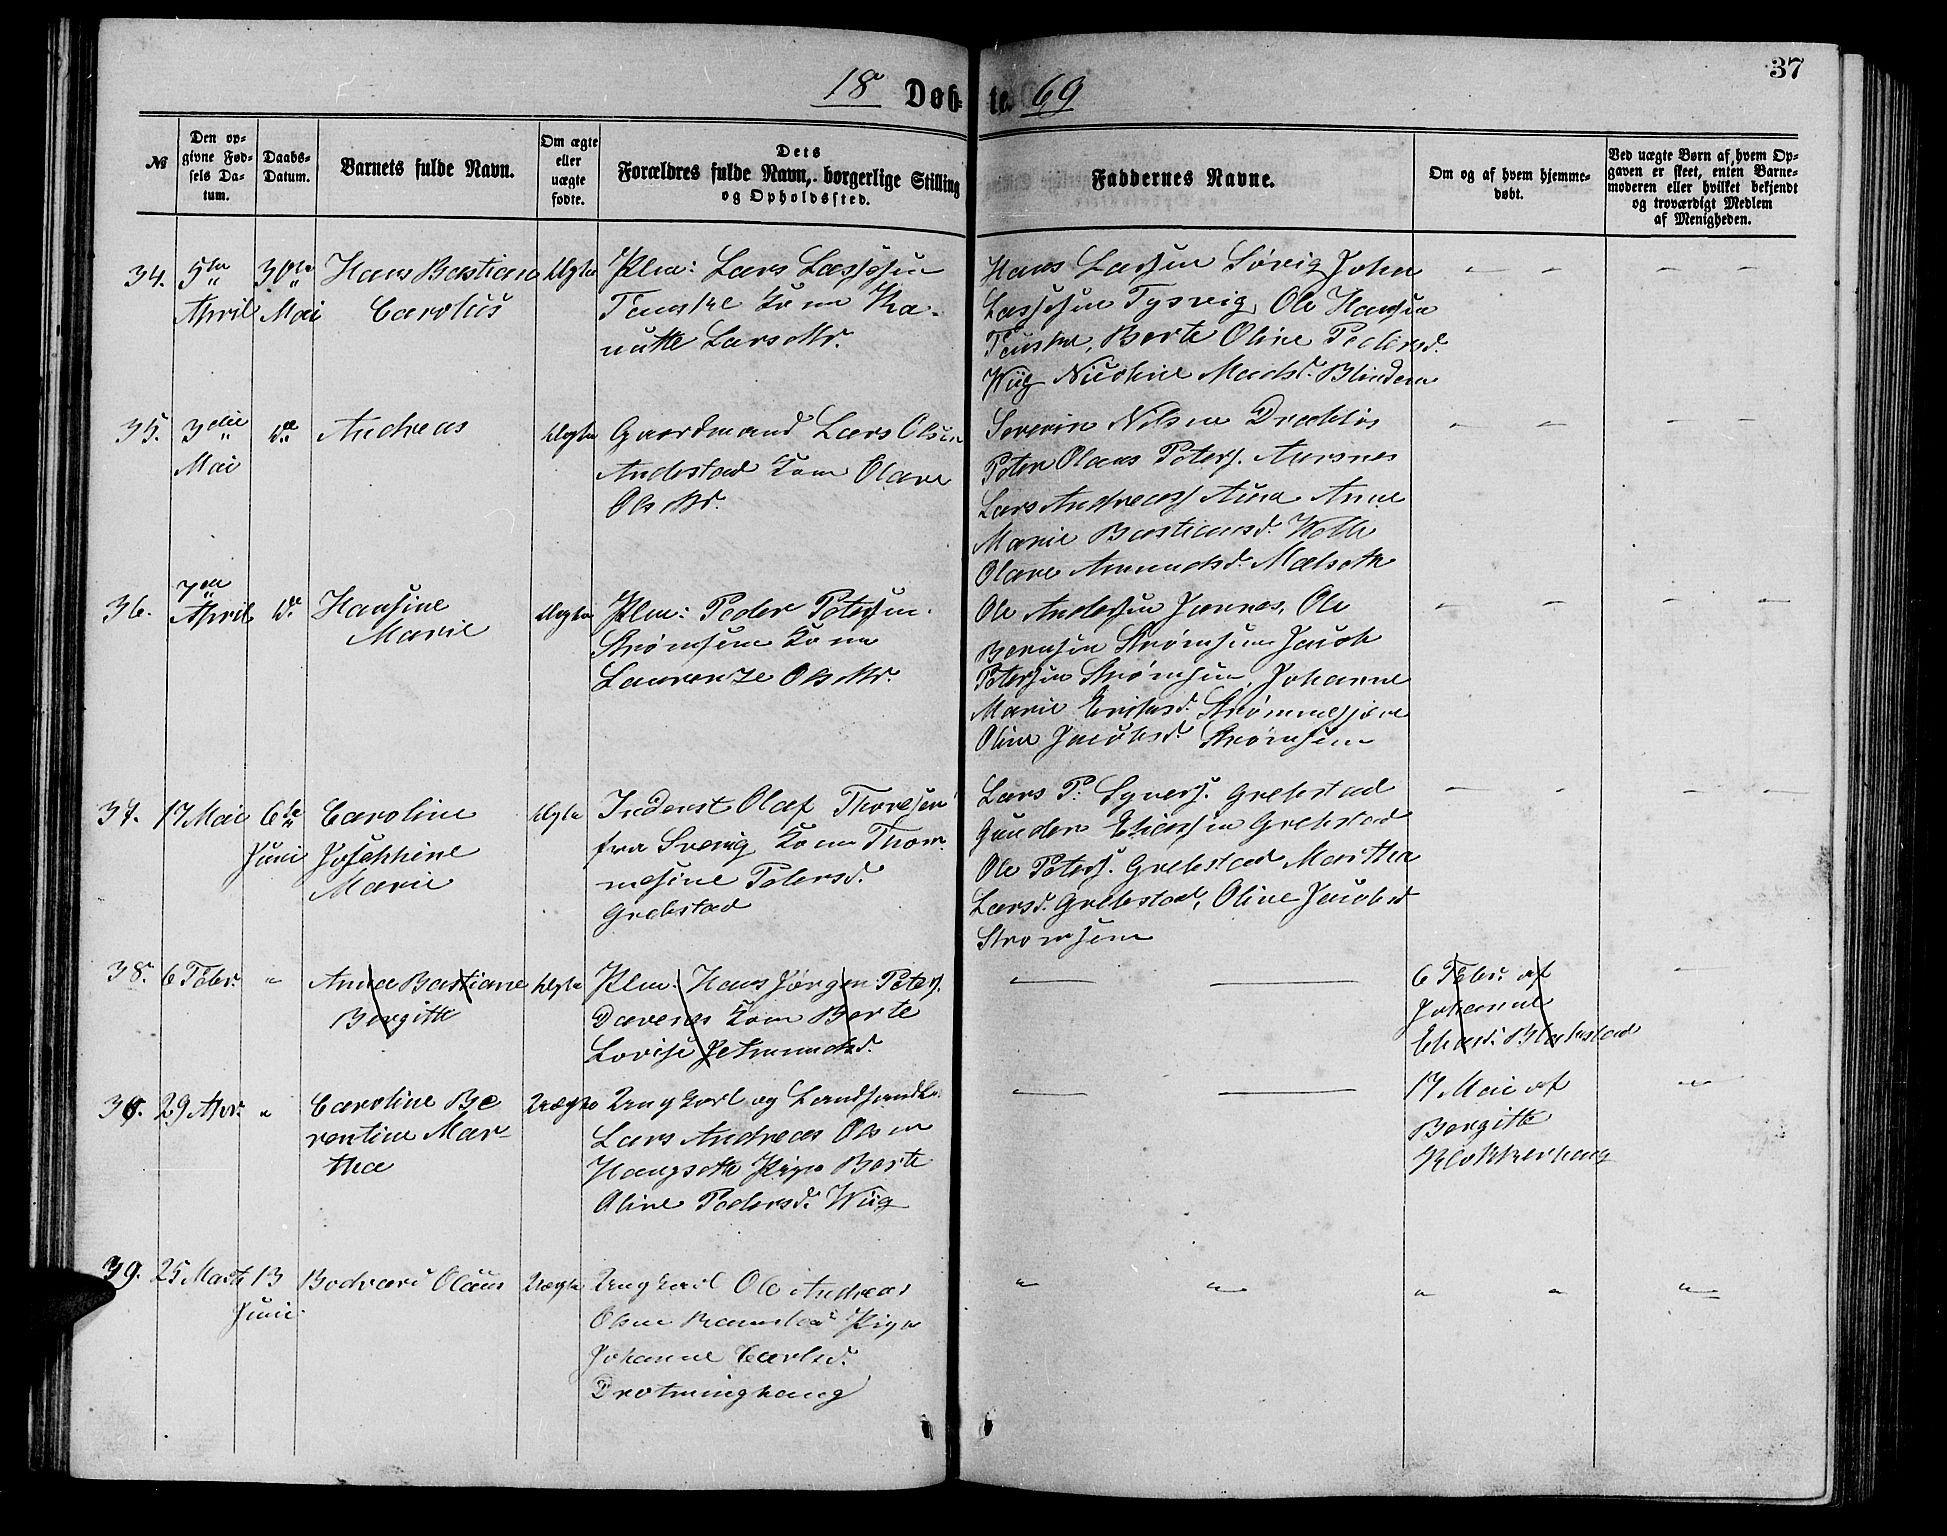 37
18 Døb- te. 69
№
Den op-
givne Fød-
sels Da-
tum.
Daabs-
Datum.
Barnets fulde Navn.
Om ægte
eller
uægte
fødte.
Dets
Forældres fulde Navn, borgerlige Stilling
og Opholdssted.
Faddernes Navne.
Om og af hvem hjemme-
døbt.
Ved uægte Børn af hvem Op-
gaven er skeet, enten Barne-
moderen eller hvilket bekjendt
og troværdigt Medlem
af Menigheden.
34. 5te
April
30te
Mai
Hans Bastian
Carolus
Ægte
Plm: Lars Lassesen
Fauske Kone Ra-
nutte Larsdtr.
Hans Larsen Søvig John
Lassesen Tysvig, Ole Hansen
Fauske, Berte Oline Pedersd.
Wiig Nicoline Madsd. Blindem
35. 3die
Mai
do
Andreas
Ægte
Gaardmand Lars Olsen
Andestad Kone Olave
Olsdtr.
Severin Nilsen Drabløs
Peter Olaus Peters. Aursnes
Lars Andreas Aure Anne
Marie Bastiansd. Welle
Olave Amundsd. Mælseth
36. 7de
April
do
Hansine
Marie
Ægte
Plm: Peder Petersen
Strømsem Kone
Laurenze Olsdtr.
Ole Andersen Jarnes, Ole
Berntsen Strømsem Jacob
Petersen Strømsem, Johanne
Marie Eriksd. Strømmegjære
Oline Jacobsd. Strømsem
37. 17 Mai
6te
Juni
Caroline
Josephine
Marie
Ægte
Inderst Olaf Thoresen
fra Sverig Kone Thom-
mesine Petersd.
Grebstad
Lars P. Syvers. Grebstad
Gunder Eliassen Grebstad
Ole Peters. Grebstad Marthe
Larsd. Grebstad, Oline Jacobsd
Strømsem
38. 6 Febr. "
Anna Bastiane
Bergitte
Ægte
Plm: Hans Jørgen Peters.
Davenes Kone Berte
Lovise Jetmundsd.
6 Febr. af
Johanne
Eliasd. Blakstad
39. 29 Apr. "
Caroline Be
rentine Mar-
tha
Uægte
Ungkarl og Landhandl.
Lars Andreas Olsen
Haugseth Pige Berte
Oline Pedersd. Wiig
17 Mai af
Bergitte
Klokkerhaug
39. 25 Marts 13
Juni
Bodvar Olaus
Uægte
Ungkarl Ole Andreas
Olsen Ramstad Pige
Johanne Carlsd.
Drotninghaug